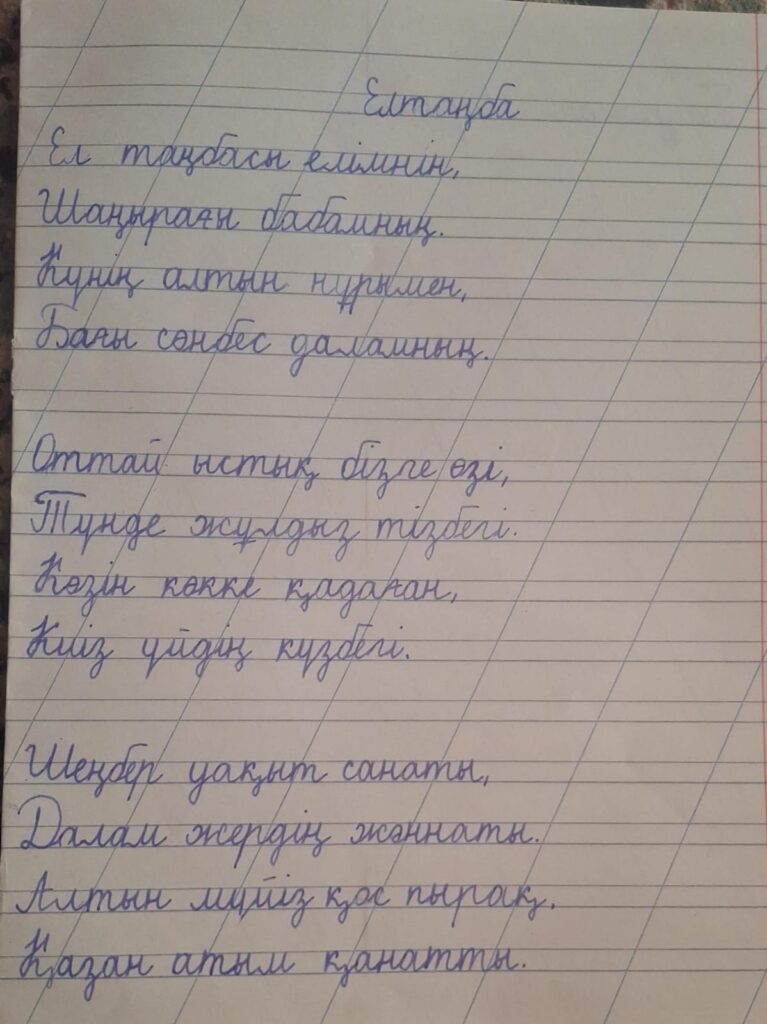 Елтаңба
Ел таңбасы елімнін,
Шаңырағы бабамның.
Күнің алтын нұрымен,
Бағы сөнбес даламның.
Оттай ыстық бізге өзі,
Түнде жұлдыз тізбегі.
Көзін көкке қадаған,
Киіз үйдің күзбегі.
Шеңбер уақыт санаты,
Далам жердің жәннаты.
Алтын мүйіз қос пырақ,
Қазан атым қанатты.